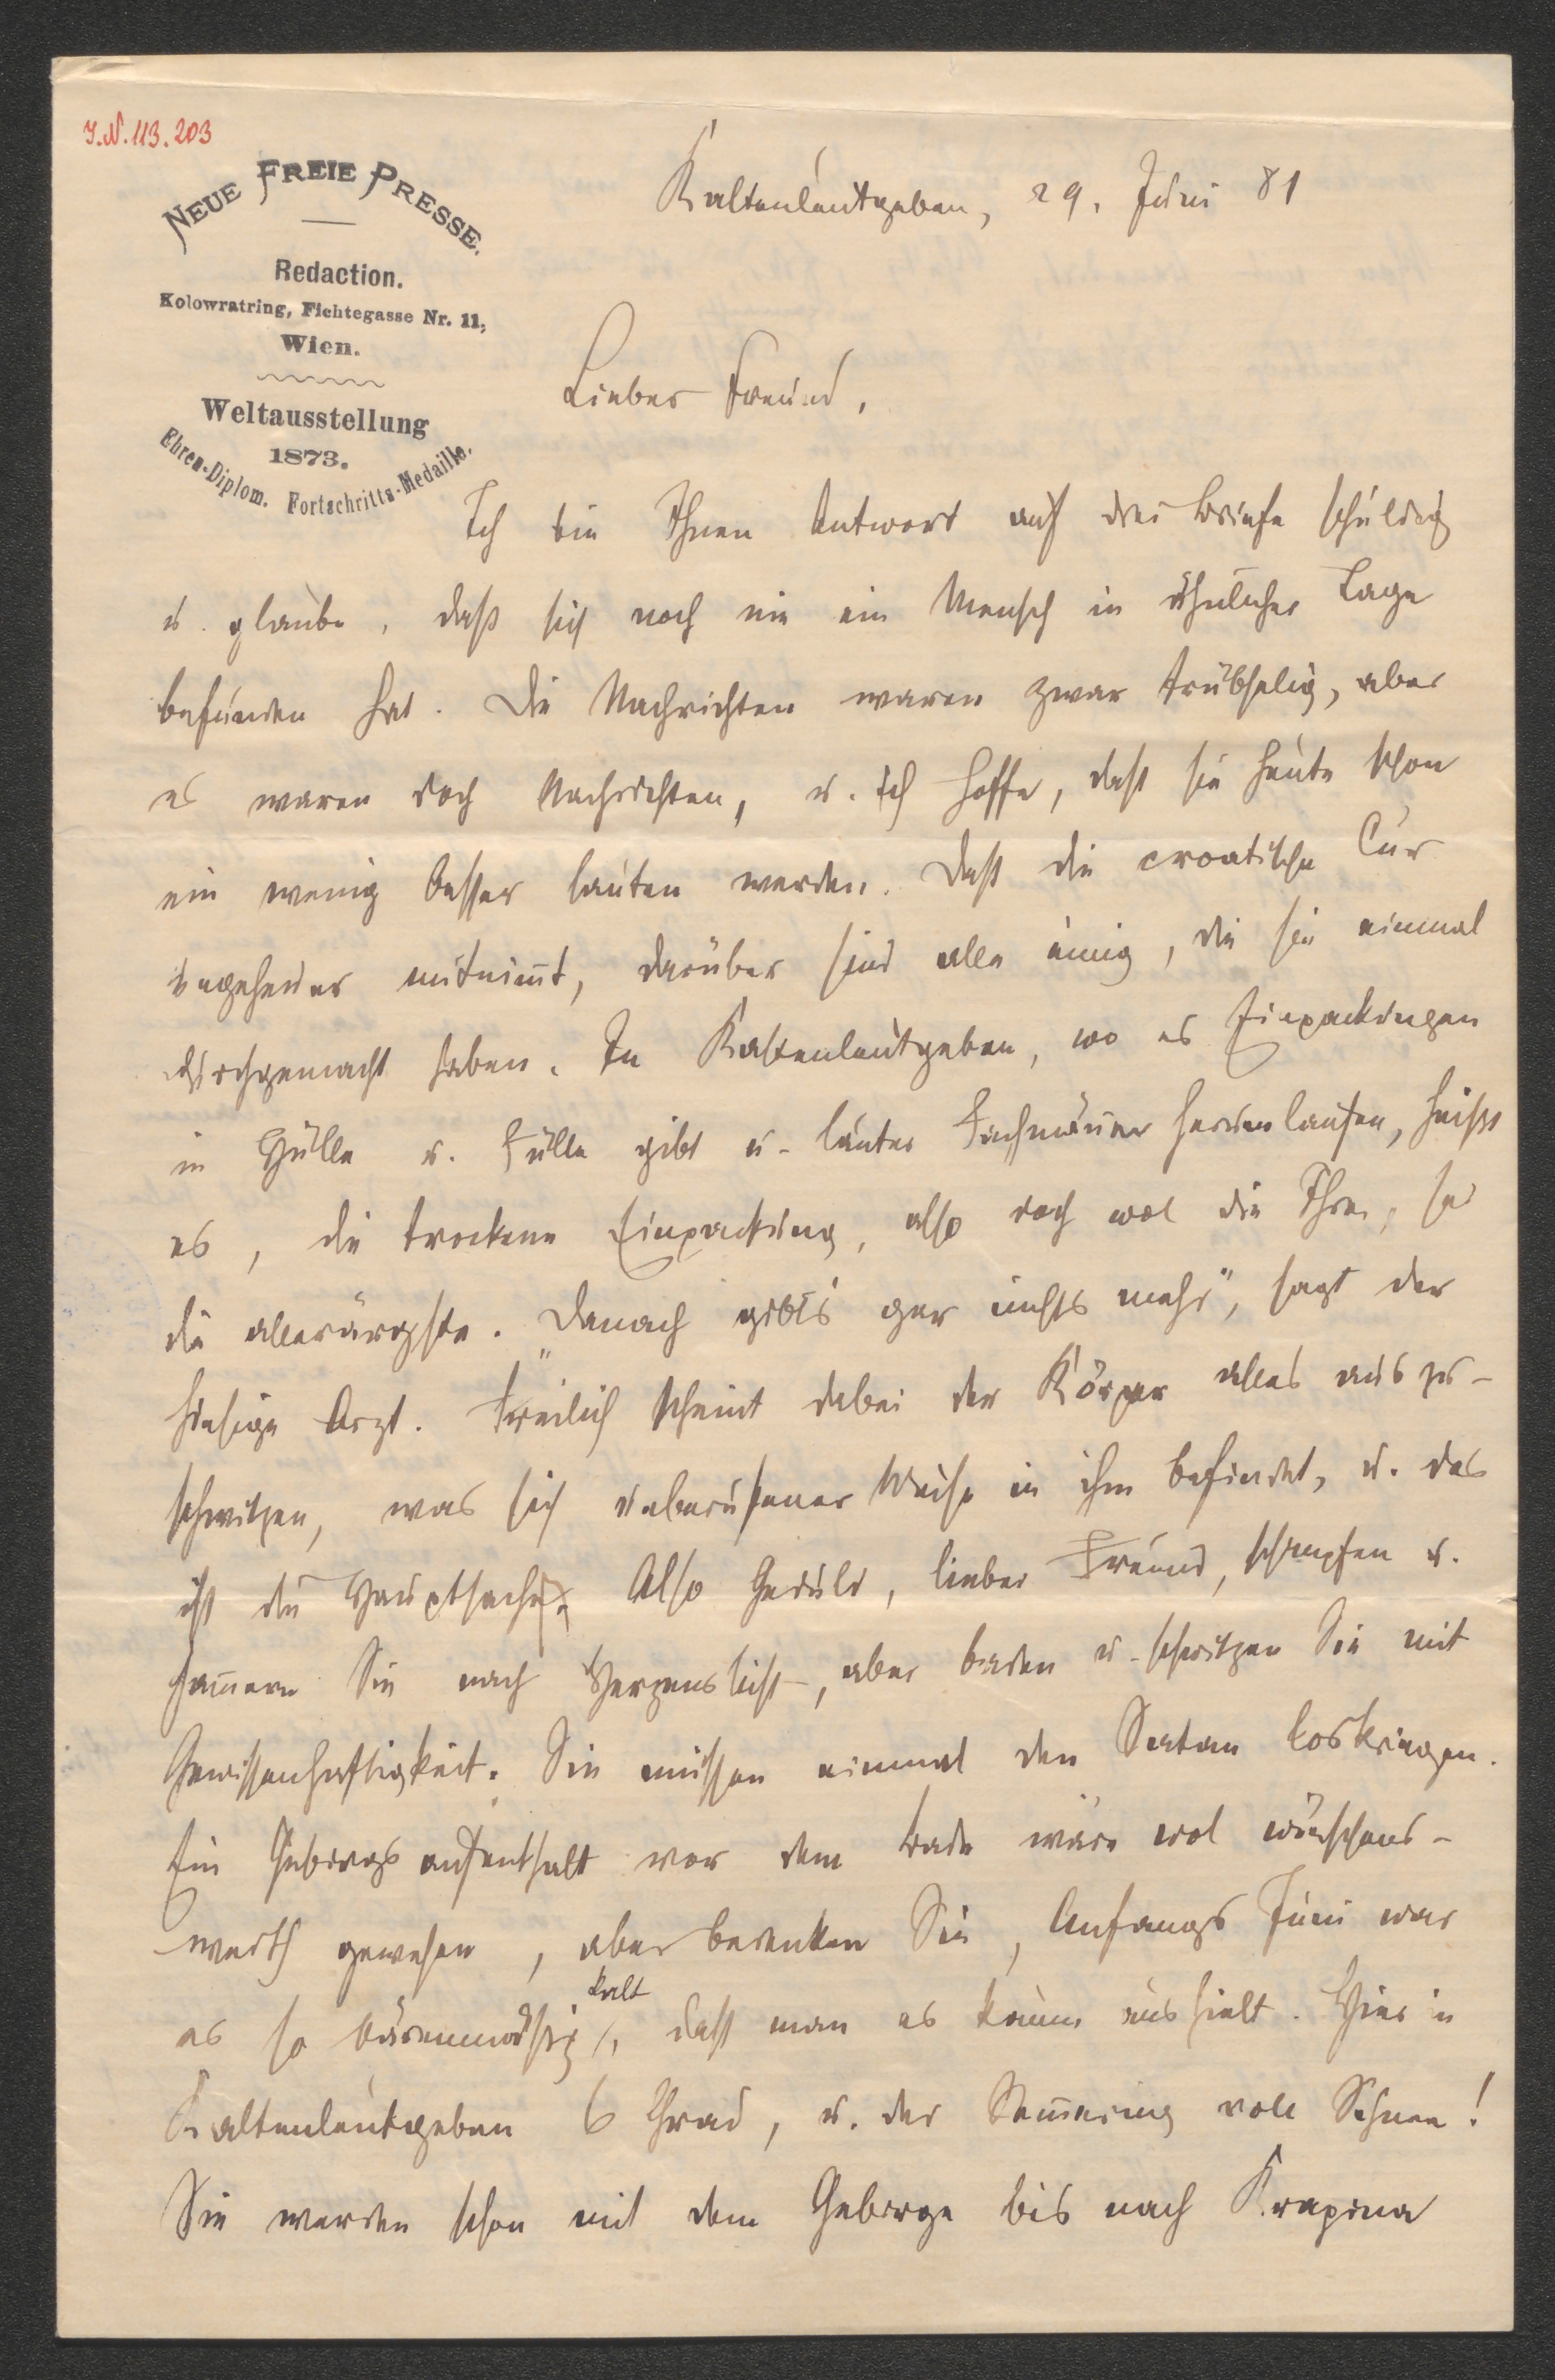 J.N. 113.203
NEUE FREIE PRESSE.
Redaction.
Kolowratring, Fichtegasse Nr. 11,
Wien.
Weltausstellung
1873.
Ehren-Diplom. Fortschritts-Medaille.
Kaltenleutgeben, 29. Juni 81
Lieber Freund,
Ich bin Ihnen Antwort auf drei Briefe schuldig
u. glaube, daß sich noch nie ein Mensch in ähnlicher Lage
befunden hat. Die Nachrichten waren zwar trübselig, aber
es waren doch Nachrichten, u. ich hoffe, daß sie heute schon
ein wenig besser lauten werden. Daß die croatische Cur
mitnim̄t, darüber sind alle einig, die sie einmal
durchgemacht haben. In Kaltenleutgeben, wo es Einpackungen
in Hülle u. Fülle gibt u. lauter Fachmän̄er herumlaufen, heißt
es, die trockene Einpackung, also doch wol die Ihre, sei
die allerärgste. „Danach gibt's gar nichts mehr", sagt der
hiesige Arzt. Freilich scheint dabei der Körper alles auszu-
schwitzen, was sich unberufener Weise in ihm befindet, u. das
ist die Hauptsache. Also Geduld, lieber Freund, schimpfen u.
jam̄ern Sie nach Herzenslust, aber baden u. schwitzen Sie mit
Gewissenhaftigkeit. Sie müssen einmal den Satan loskriegen.
Ein Gebirgsaufenthalt vor dem Bade wäre wol wünschens-
werth gewesen, aber bedenken Sie, Anfangs Juni war
es so bärenmäßig kalt, daß man es kaum aushielt. Hier in
Kaltenleutgeben 6 Grad, u. der Sem̄ering voll Schnee!
Sie werden schon mit dem Gebirge bis nach Krapina